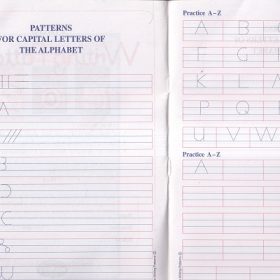 PATTERNS
FOR CAPITAL LETTERS OF
THE ALPHABET
A
Practice A–Z
A B
F G
K L
P Q R
U V W
Practice A–Z
A